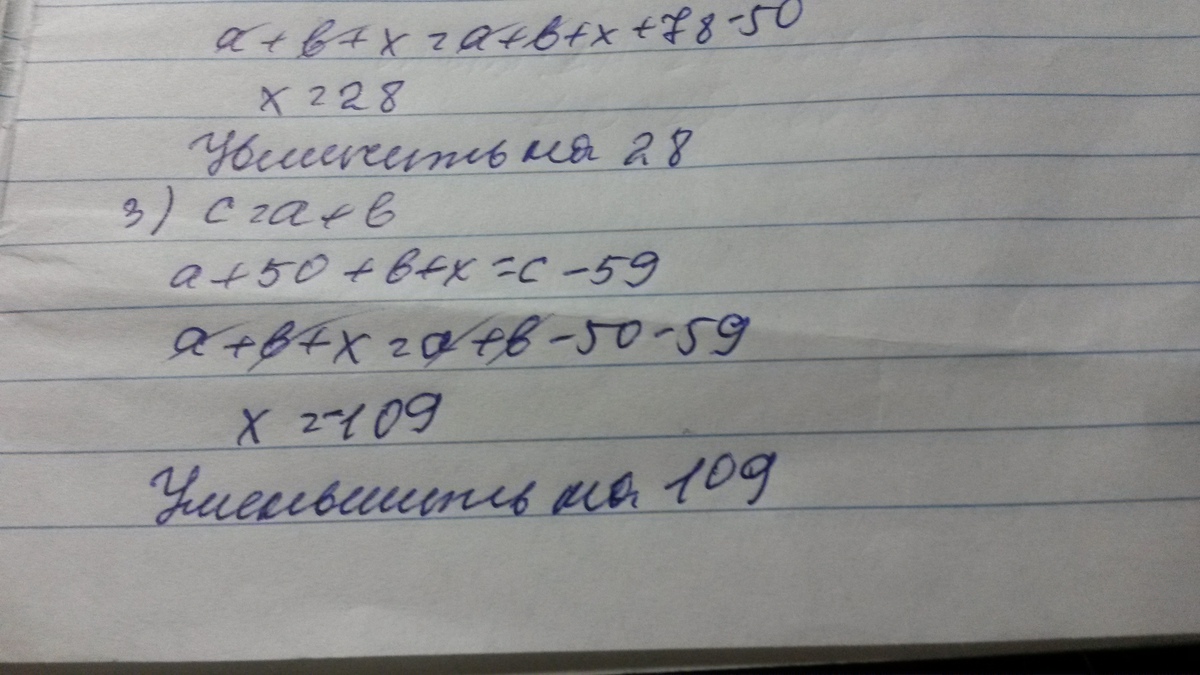 a + в + x = a + в + x + 78 - 50
x = 28
Увеличить на 28
3) c = a + в
a + 50 + в + x = c - 59
a + в + x = a + в - 50 - 59
x = -109
Уменьшить на 109